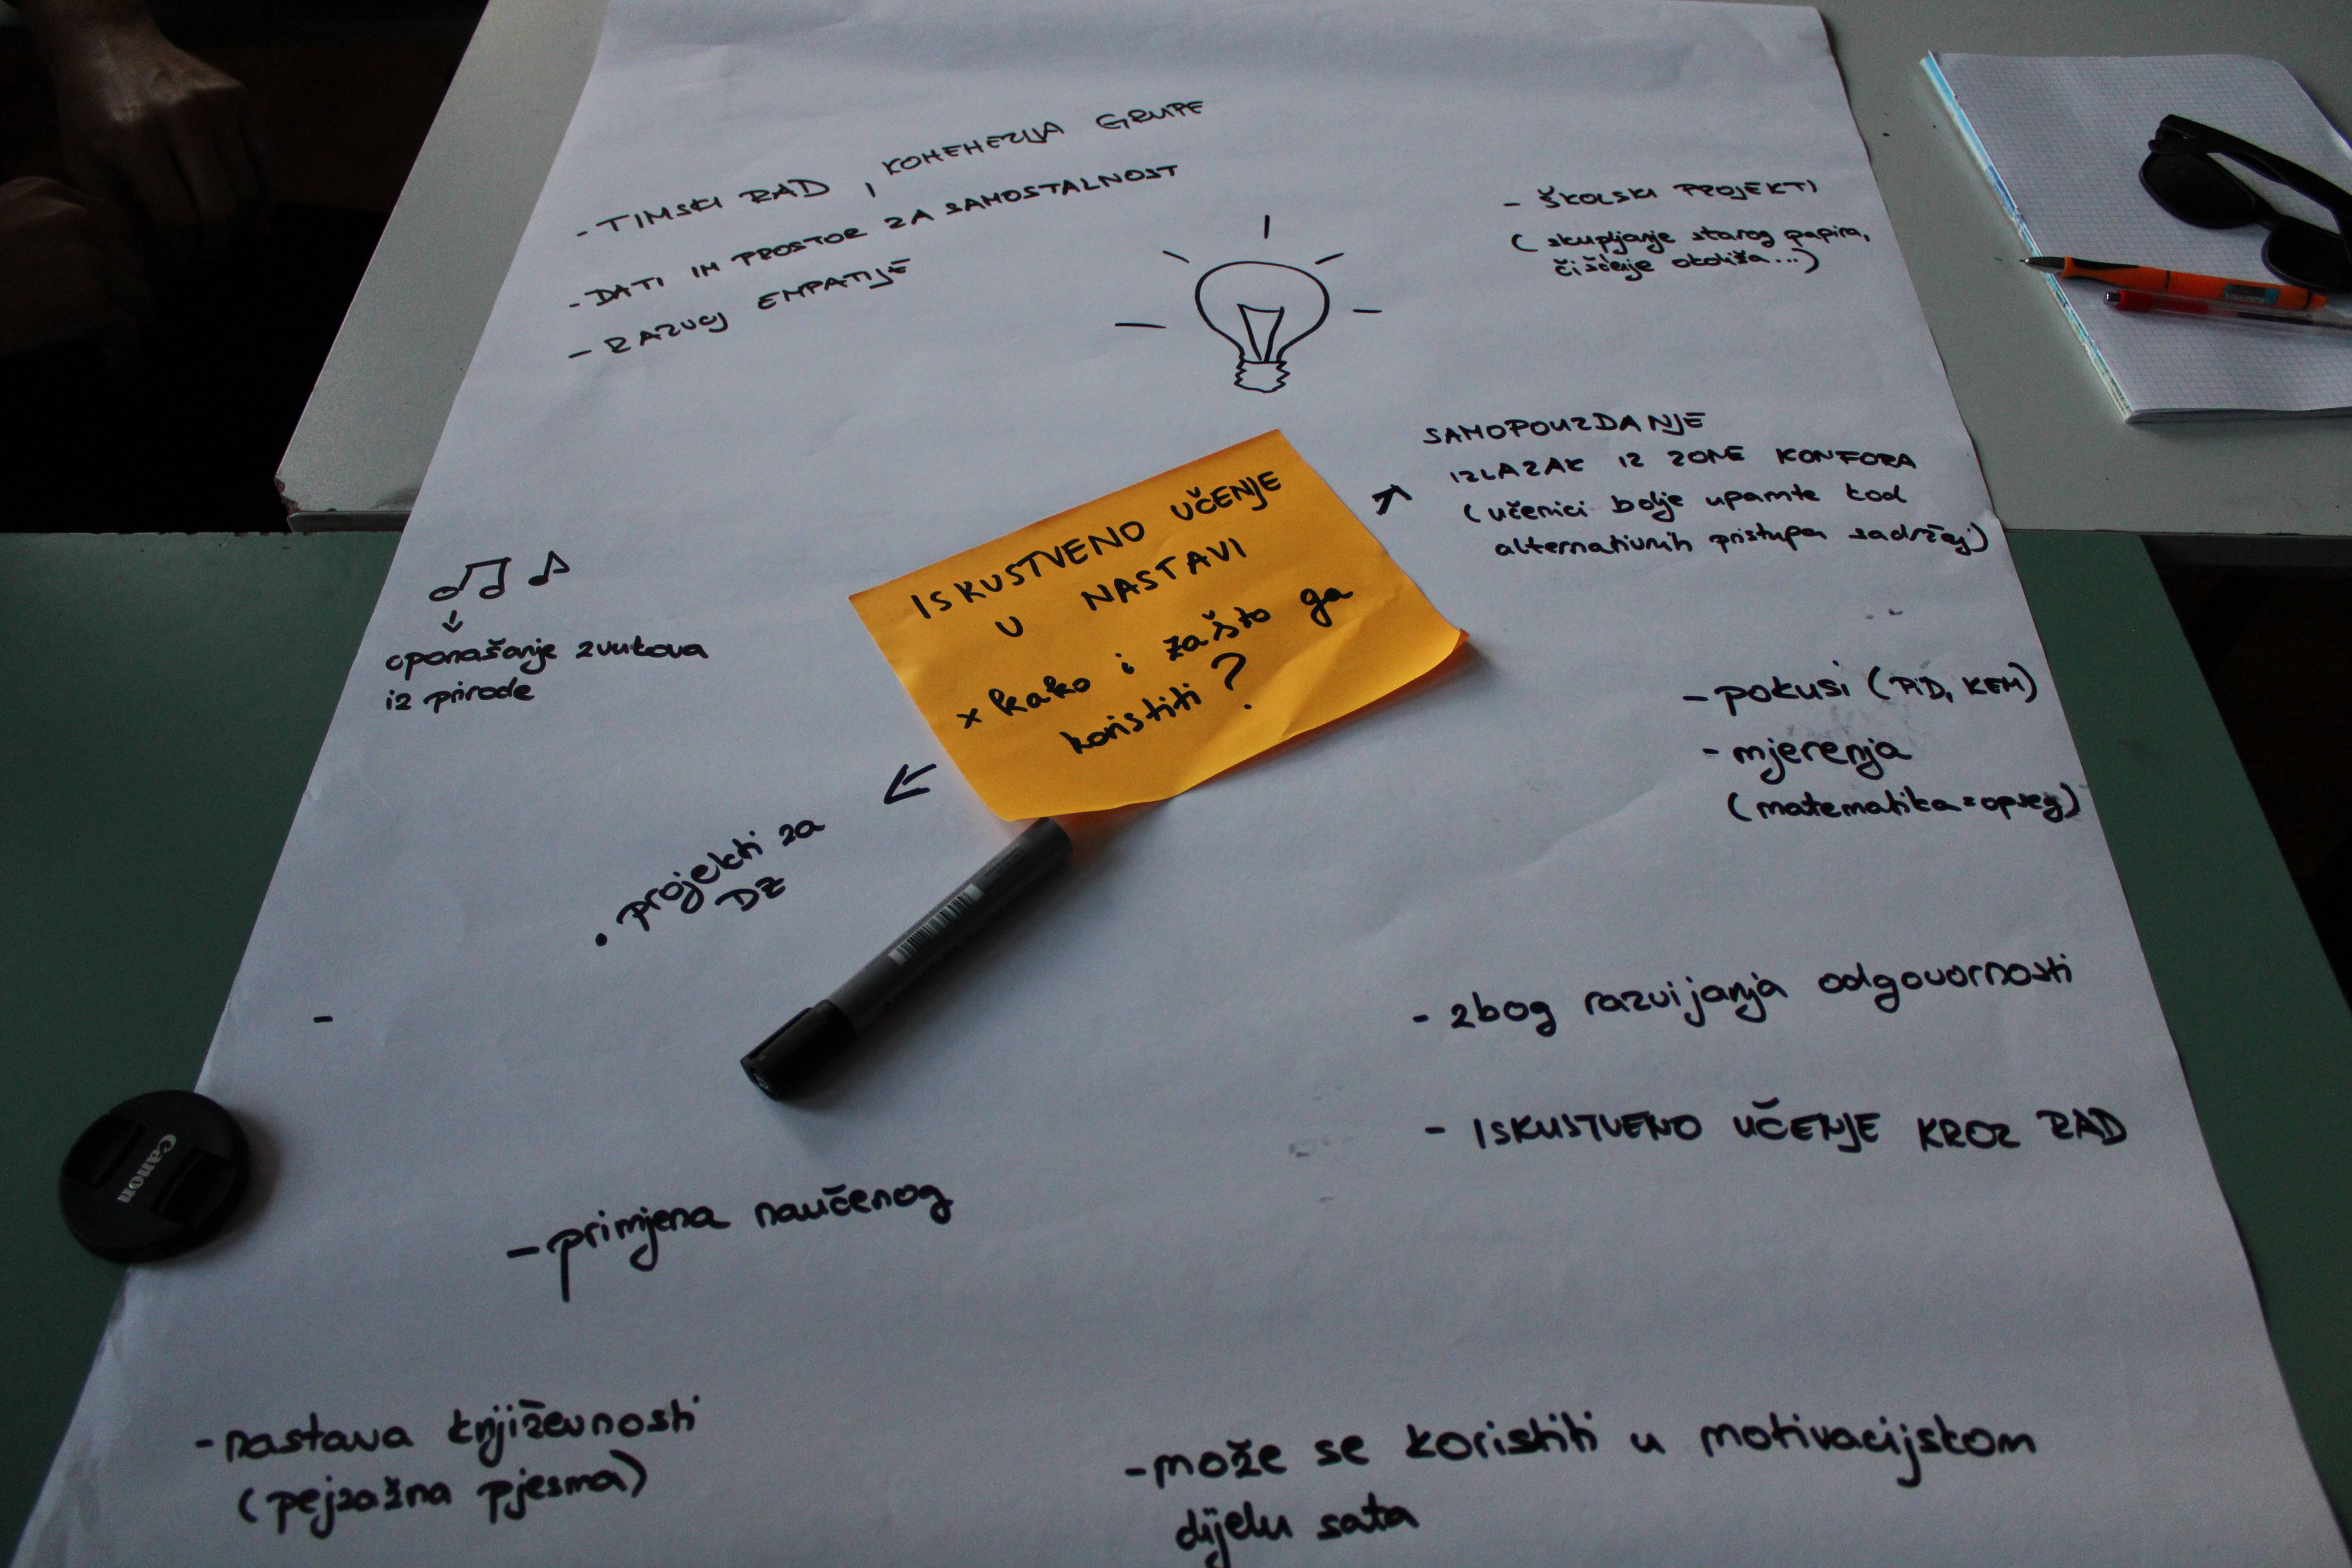 - TIMSKI RAD, KOHEHEZIJA GRUPE
- DATI IM PROSTOR ZA SAMOSTALNOST
- RAZVOJ EMPATIJE
- ŠKOLSKI PROJEKTI
( skupljanje starog papira,
čišćenje okoliša...)
SAMOPOUZDANJE
IZLAZAK IZ ZONE KONFORA
(učenici bolje upamte kod
alternativnih pristupa sadržaj)
ISKUSTVENO UČENJE
U NASTAVI
x kako i zašto ga
koristiti ?
oponašanje zvukova
iz prirode
- pokusi (PiD, KEM)
- mjerenja
(matematika=opseg)
• projekti za
DZ
- zbog razvijanja odgovornosti
-
- ISKUSTVENO UČENJE KROZ RAD
Canon
- primjena naučenog
- nastava književnosti
(pejzažna pjesma)
- može se koristiti u motivacijskom
dijelu sata